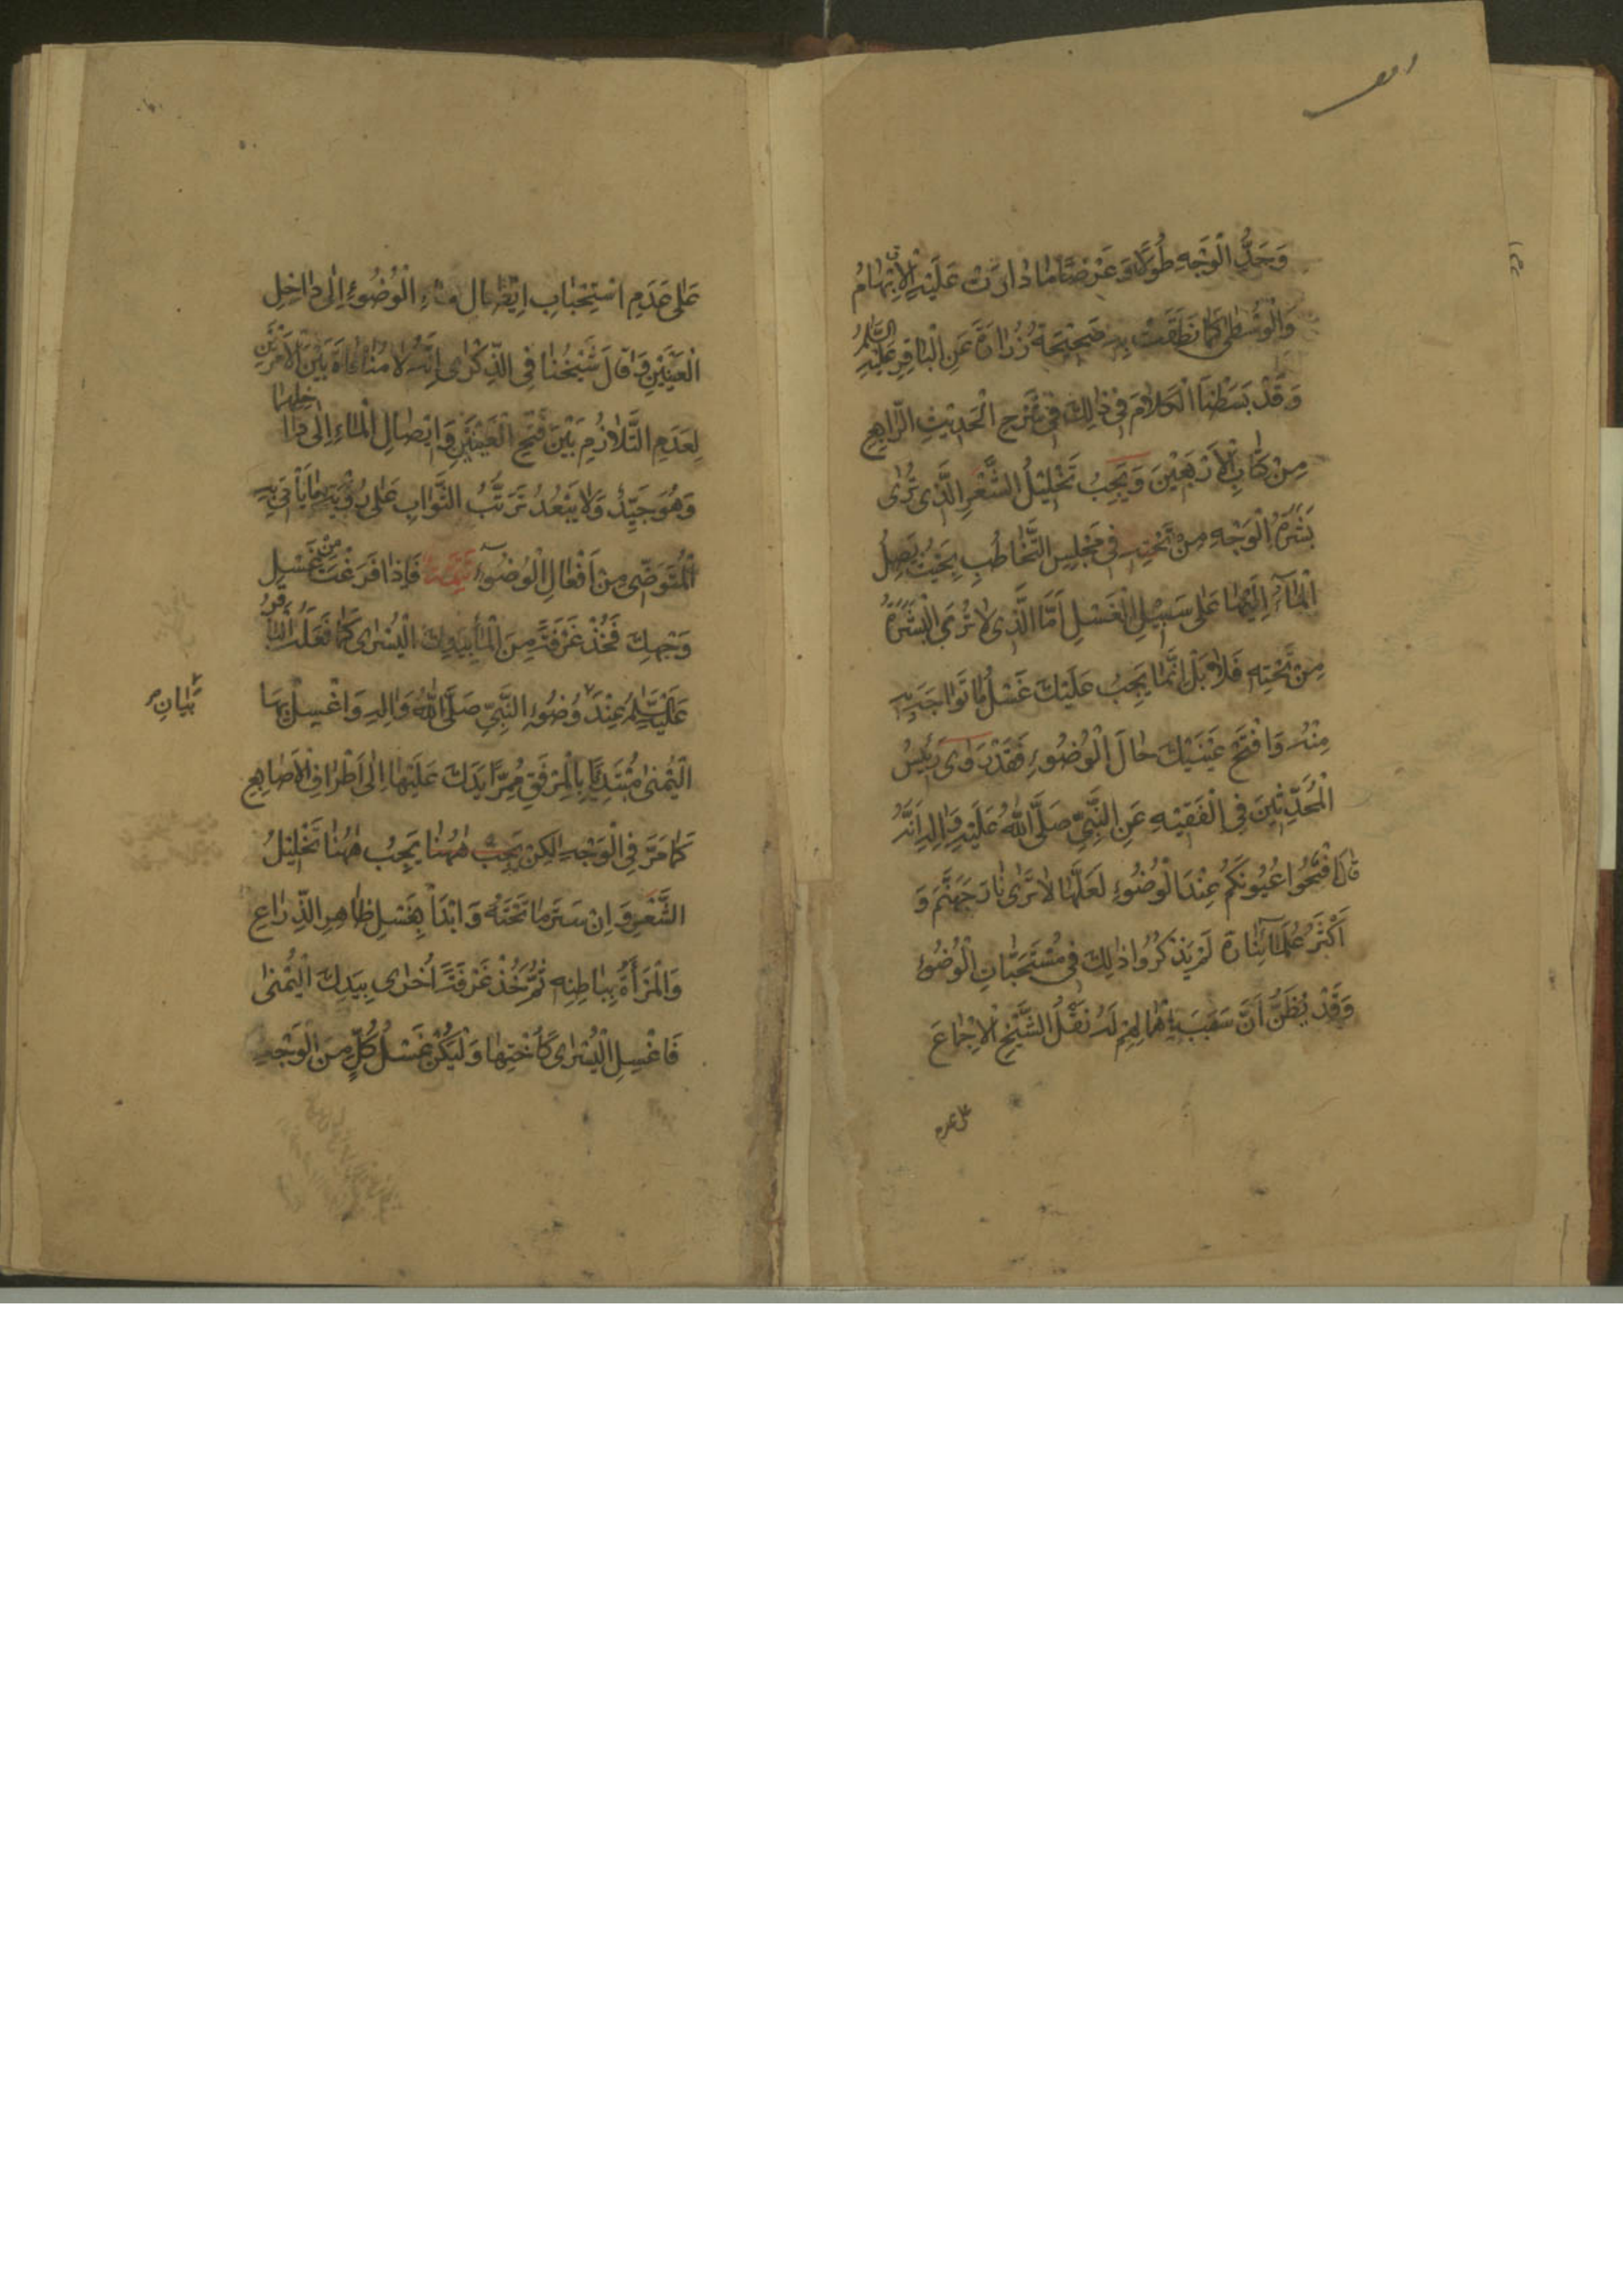 وَحَدُّ الْوَجْهِ طُولًا وَعَرْضًا مَا دَارَتْ عَلَيْهِ الْإِبْهَامُ
وَالْوُسْطَىٰ كَمَا نَطَقَتْ بِهِ صَحِيْحَةُ زُرَارَةَ عَنِ الْبَاقِرِ عَلَيْهِ السَّلَمُ
وَقَدْ بَسَطْنَا الْكَلَامَ فِي ذٰلِكَ فِي شَرْحِ الْحَدِيْثِ الرَّابِعِ
مِنْ كِتَابِ الْأَرْبَعِيْنَ وَيَجِبُ تَخْلِيْلُ الشَّعْرِ الَّذِي تُرٰى
بَشَرَةُ الْوَجْهِ مِنْ تَحْتِهِ فِي مَجْلِسِ التَّخَاطُبِ بِحَيْثُ يَصِلُ
الْمَآءُ إِلَيْهَا عَلَى سَبِيْلِ الْغَسْلِ أَمَّا الَّذِي لَا تُرَى الْبَشَرَةُ
مِنْ تَحْتِهِ فَلَا بَلْ إِنَّمَا يَجِبُ عَلَيْكَ غَسْلُ مَا تُوَاجَهُ بِهِ
مِنْهُ وَافْتَحْ عَيْنَيْكَ حَالَ الْوُضُوءِ فَقَدْ رَوٰى رَئِيْسُ
الْمُحَدِّثِيْنَ فِي الْفَقِيْهِ عَنِ النَّبِيِّ صَلَّى اللّٰهُ عَلَيْهِ وَاٰلِهِ أَنَّهُ
قَالَ افْتَحُوا عُيُونَكُمْ عِنْدَ الْوُضُوءِ لَعَلَّهَا لَا تَرٰى نَارَ جَهَنَّمَ وَ
أَكْثَرُ عُلَمَآئِنَا رَهْ لَمْ يَذْكُرُوا ذٰلِكَ فِي مُسْتَحَبَّاتِ الْوُضُوءِ
وَقَدْ يُظَنُّ أَنَّ سَبَبَ إِهْمَالِهِمْ لَهُ نَقْلُ الشَّيْخِ الْإِجْمَاعَ
على عدم
عَلٰى عَدَمِ اسْتِحْبَابِ إِيْصَالِ مَاءِ الْوُضُوءِ إِلٰى دَاخِلِ
الْعَيْنَيْنِ وَقَالَ شَيْخُنَا فِي الذِّكْرٰى إِنَّهُ لَا مُنَافَاةَ بَيْنَ الْأَمْرَيْنِ
لِعَدَمِ التَّلَازُمِ بَيْنَ فَتْحِ الْعَيْنَيْنِ وَإِيْصَالِ الْمَاءِ إِلٰى دَاخِلِهِمَا
وَهُوَ جَيِّدٌ وَلَا يَبْعُدُ تَرَتُّبُ الثَّوَابِ عَلٰى رُؤْيَةِ مَا يَأْتِي بِهِ
الْمُتَوَضِّي مِنْ أَفْعَالِ الْوُضُوءِ تَتِمَّة فَإِذَا فَرَغْتَ مِنْ غَسْلِ
وَجْهِكَ فَخُذْ غَرْفَةً مِنَ الْمَاءِ بِيَدِكَ الْيُسْرٰى كَمَا فَعَلَ الْبَاقِرُ
عَلَيْهِ السَّلَمُ عِنْدَ وُضُوءِ النَّبِيِّ صَلَّى اللّٰهُ وَاٰلِهِ وَاغْسِلْ بِهَا
بَيَانِ
الْيُمْنٰى مُبْتَدِئًا بِالْمِرْفَقِ مُمِرًّا يَدَكَ عَلَيْهَا إِلٰى أَطْرَافِ الْأَصَابِعِ
كَمَا مَرَّ فِي الْوَجْهِ لٰكِنْ يَجِبُ هٰهُنَا يَجِبُ هٰهُنَا تَخْلِيْلُ
الشَّعْرِ وَإِنْ سَتَرَ مَا تَحْتَهُ وَابْدَأْ بِغَسْلِ ظَاهِرِ الذِّرَاعِ
وَالْمَرْأَةُ بِبَاطِنِهِ ثُمَّ خُذْ غَرْفَةً أُخْرٰى بِيَدِكَ الْيُمْنٰى
فَاغْسِلِ الْيُسْرٰى كَأُخْتِهَا وَلْيَكُنْ غَسْلُ كُلٍّ مِنَ الْوَجْهِ